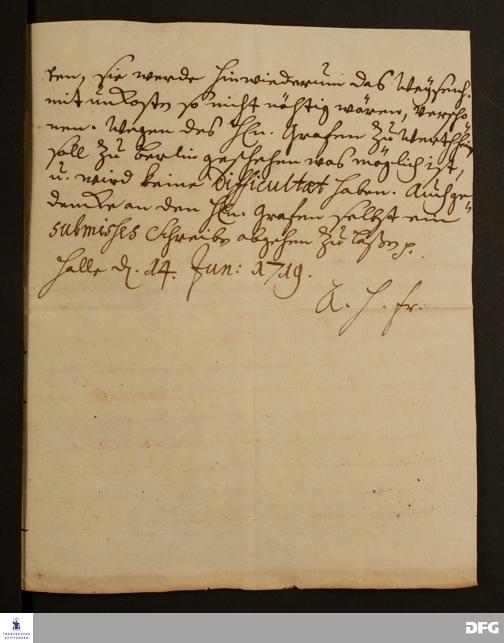 ten, sie werde hinwiederum das Waÿsenh.
mit unkosten so nicht nöhtig wären, verscho¬
nen. Wegen des Hln. Grafen zu Wertheim
soll zu Berlin geschehen was möglich ist,
u. wird keine Difficultät haben. Auch ge¬
dencke an den Hln. Grafen selbst ein
submisses Schreiben abgehen zu laßen p.
Halle d. 14. Jun: 1719.
A. H. Fr.
FRANCKESCHE
STIFTUNGEN
DFG